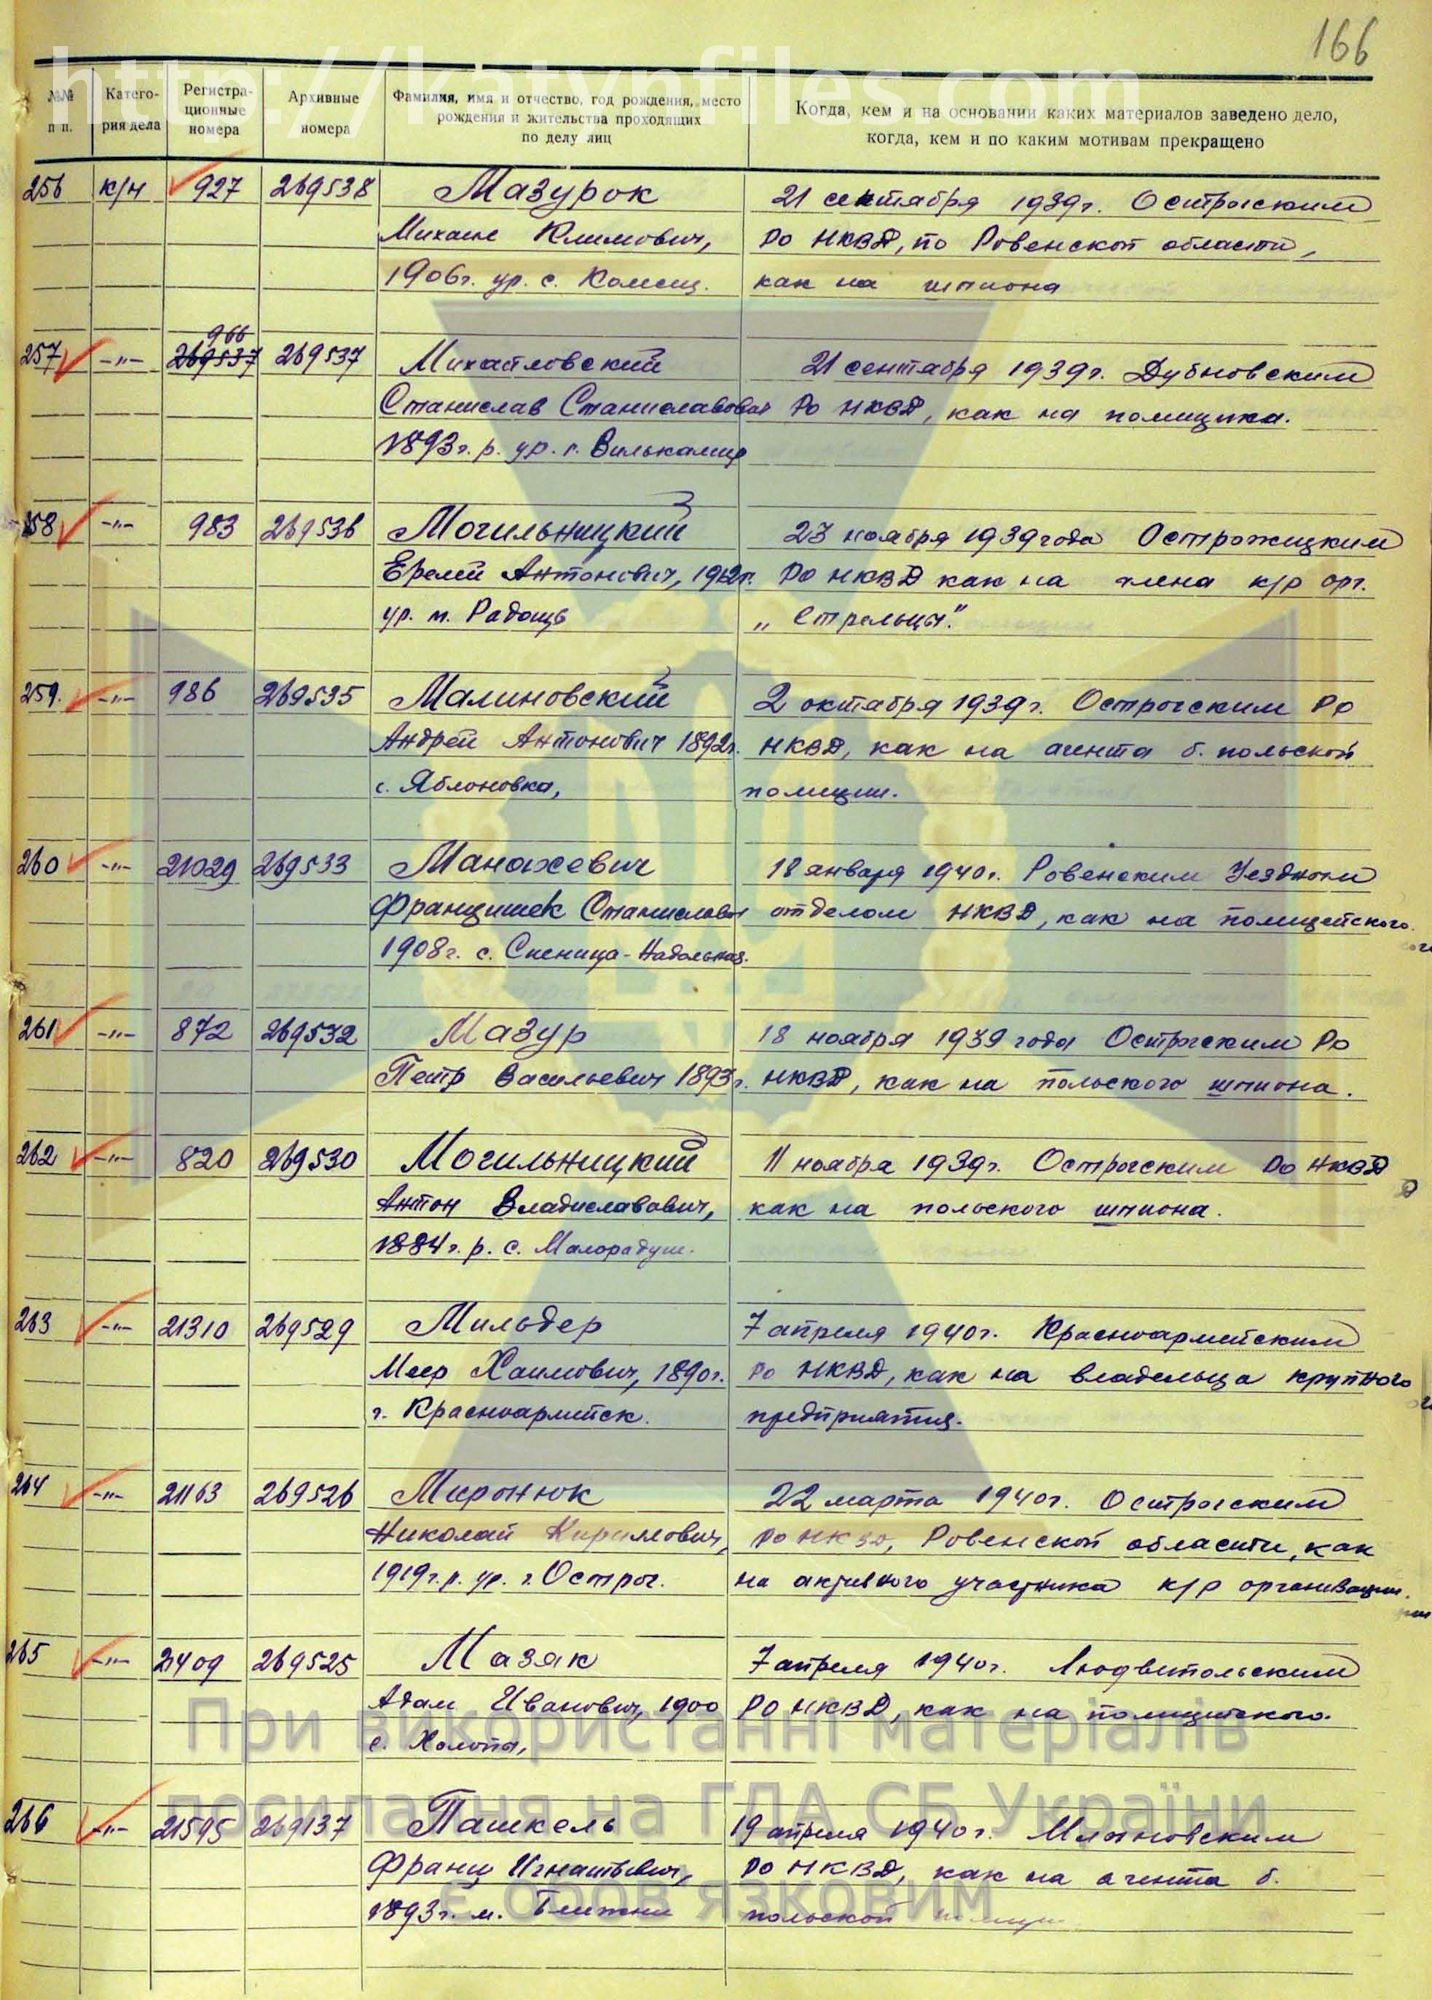 166
http://katynfiles.com
№№ п п.
Катего-рия дела
Регистра-ционные номера
Архивные номера
Фамилия, имя и отчество, год рождения, место рождения и жительства проходящих по делу лиц
Когда, кем и на основании каких материалов заведено дело, когда, кем и по каким мотивам прекращено
256 к/ч 927 269538 Мазурок 21 сентября 1939г. Острогским
Михаил Климович, РО НКВД, по Ровенской области,
1906г. ур. с. как на шпиона
966
257 -"- 269537 269537 Михайловский 21 сентября 1939г. Дубновским
Станислав Станиславович РО НКВД, как на помещика.
1893г. р. ур. г. Вилькамир
258 -"- 983 269536 Могильницкий 23 ноября 1939 года Острожицким
Еремей Антонович, 1912г. РО НКВД как на члена к/р орг.
ур. м. Радощь „Стрельцы".
259. -"- 986 269535 Малиновский 2 октября 1939г. Острогским РО
Андрей Антонович 1892г. НКВД, как на агента б. польской
с. Яблоновка, полиции.
260 -"- 21029 269533 Манажевич 18 января 1940г. Ровенским Уездным
Францишек Станиславов отделом НКВД, как на полицейского.
1908г. с.
261 -"- 872 269532 Мазур 18 ноября 1939 года Острогским РО
Петр Васильевич 1893г. НКВД, как на польского шпиона.
262 -"- 820 269530 Могильницкий 11 ноября 1939г. Острогским РО НКВД
Антон Владиславович, как на польского шпиона.
1884г. р. с.
263 -"- 21310 269529 Мильдер 7 апреля 1940г. Красноармейским
Меер Хаимович, 1890г. РО НКВД, как на владельца крупного
г. Красноармейск. предприятия.
264 -"- 21163 269526 Миронюк 22 марта 1940г. Острогским
Николай Кириллович, РО НКВД, Ровенской области, как
1919г.р. ур. г. Острог. на активного участника к/р организации.
265 -"- 21409 269525 Мазяк 7 апреля 1940г. Людвипольским
Адам Иванович, 1900 РО НКВД, как на полицейского.
с. Холопы,
266 -"- 21595 269137 Пашкель 19 апреля 1940г. Млыновским
Франц Игнатьевич, РО НКВД, как на агента б.
1893г. м. польской
При використанні матеріалів
посилання на ГДА СБ України
є обов'язковим